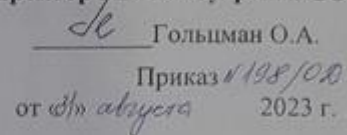 Гольцман О.А.
Приказ №198/ОД
от «31» августа 2023 г.